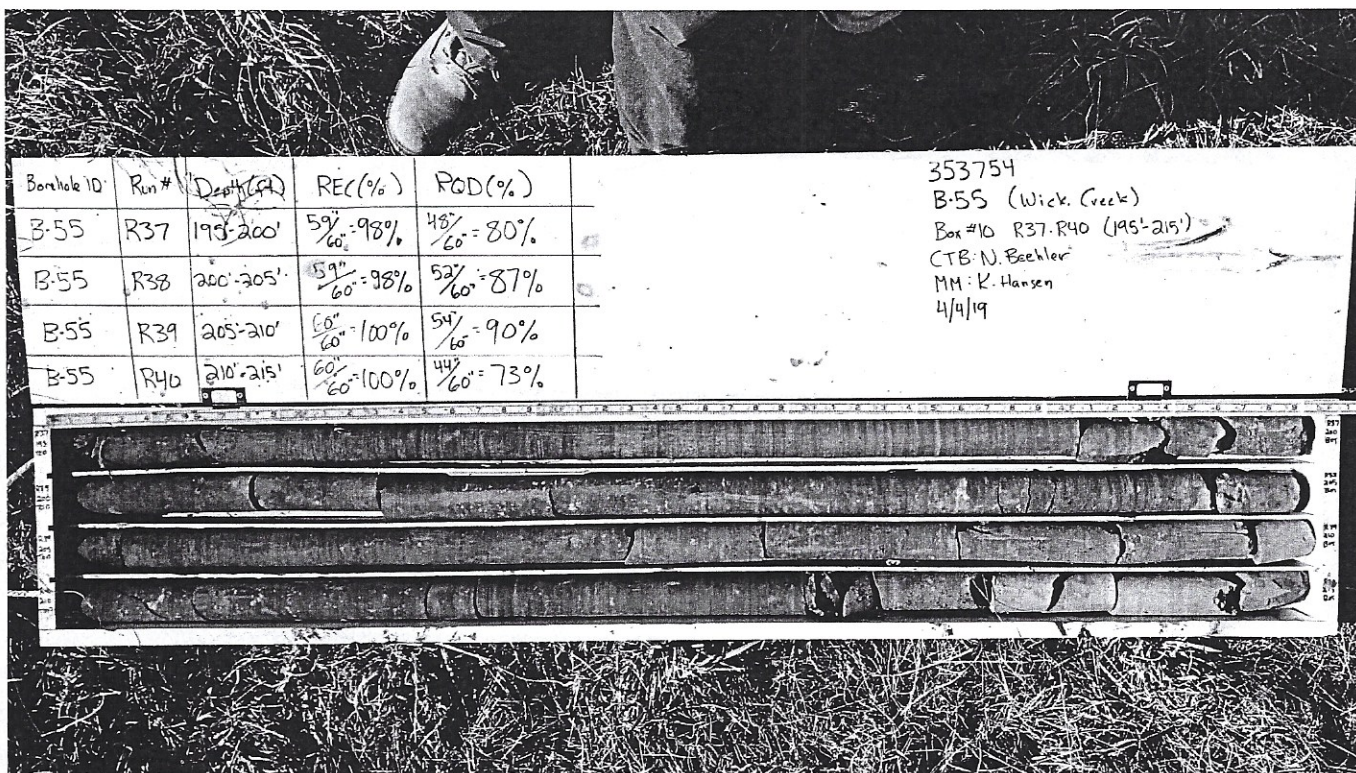 Borehole ID Run # Depth (ft) REC (%) RQD (%)
B-55 R37 195'-200' 59"/60" = 98% 48"/60" = 80%
B-55 R38 200'-205' 59"/60" = 98% 52"/60" = 87%
B-55 R39 205'-210' 60"/60" = 100% 54"/60" = 90%
B-55 R40 210'-215' 60"/60" = 100% 44"/60" = 73%
353754
B-55 (Wick. Creek)
Box #10 R37-R40 (195'-215')
CTB: N. Beehler
MM: K. Hansen
4/4/19